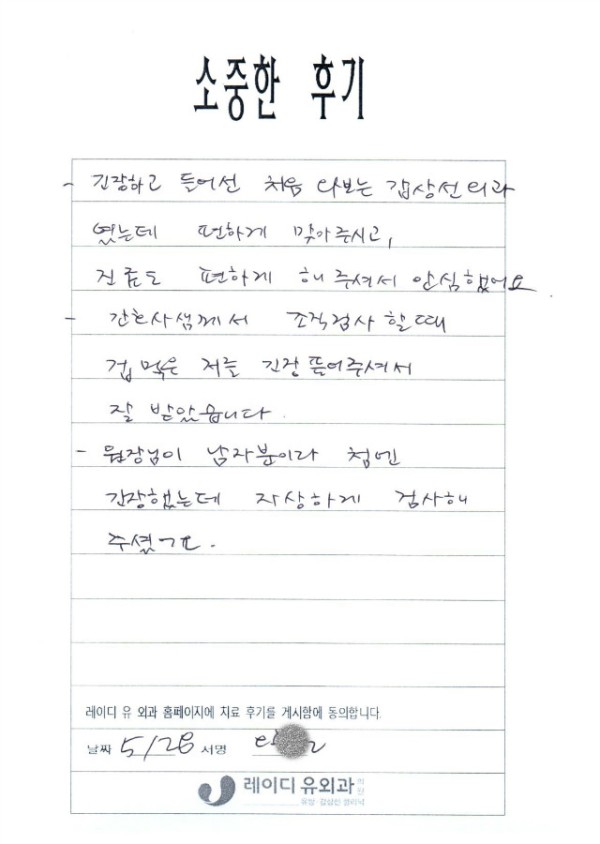 소중한 후기
- 긴장하고 들어선 처음 와보는 갑상선외과
였는데 편하게 맞아주시고,
진료도 편하게 해 주셔서 안심했어요
- 간호사샘께서 조직검사 할때
겁먹은 저를 긴장 풀어주셔서
잘 받았습니다.
- 원장님이 남자분이라 첨엔
긴장했는데 자상하게 검사해
주셨구요.
레이디 유 외과 홈페이지에 치료 후기를 게시함에 동의합니다.
날짜 5/28 서명
레이디 유외과 의원
유방·갑상선 클리닉